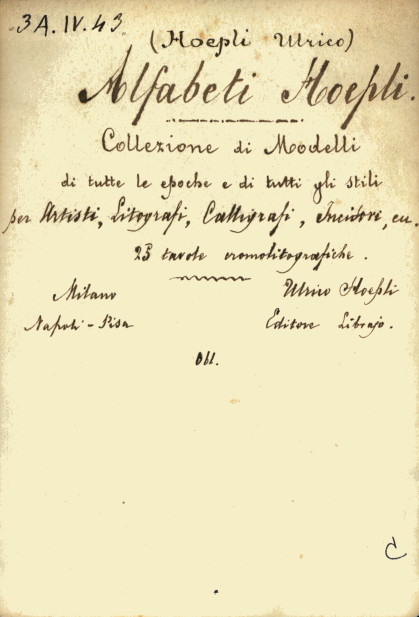 3A.IV.43
(Hoepli Ulrico)
Alfabeti Hoepli.
Collezione di Modelli
di tutte le epoche e di tutti gli stili
per Artisti, Litografi, Calligrafi, Incisori, ecc.
25 tavole cromolitografiche.
Milano
Napoli - Pisa
Ulrico Hoepli
Editore Librajo.